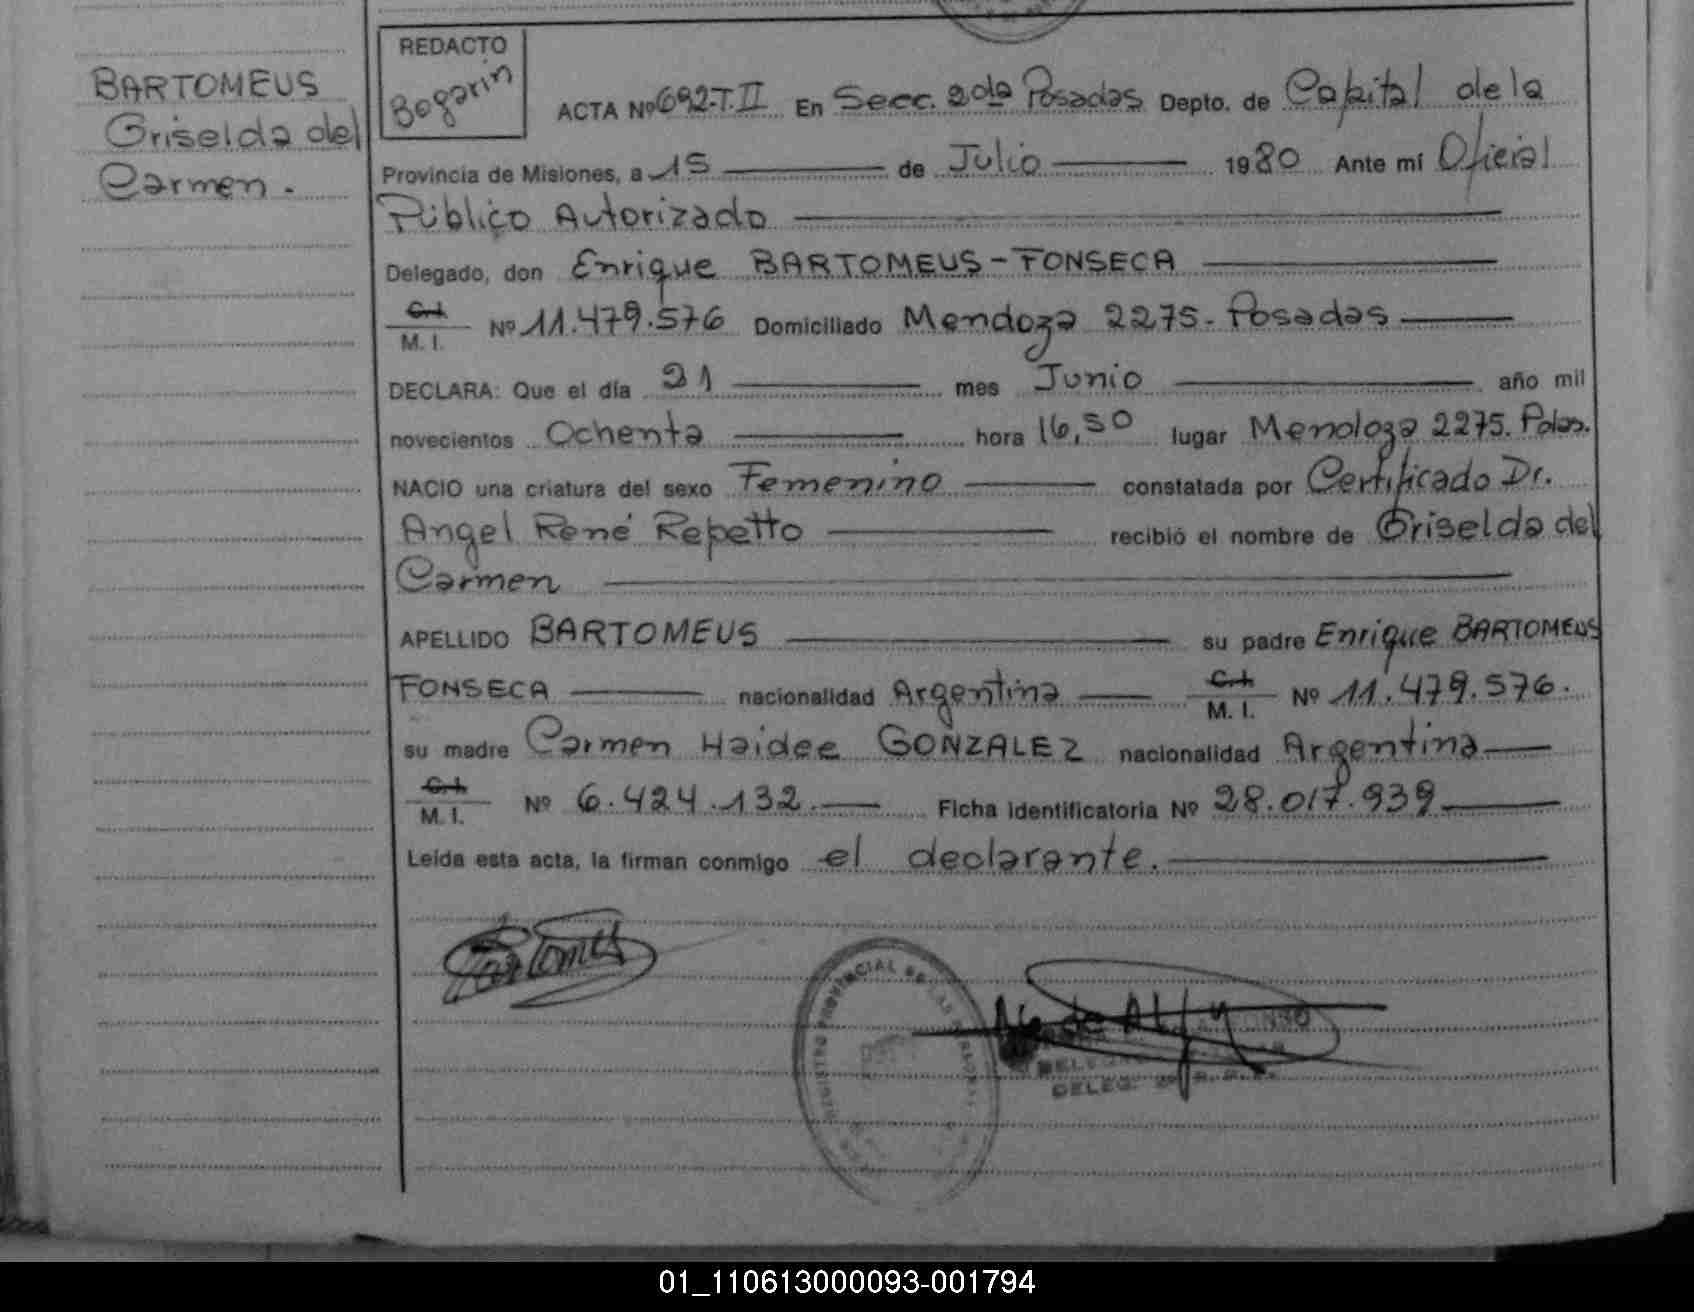 BARTOMEUS
Griselda del
Carmen.
REDACTO
Bogarin
ACTA Nº 692-T.II En Secc. 2da Posadas Depto. de Capital de la
Provincia de Misiones, a 15 de Julio 1980 Ante mí Oficial
Público Autorizado
Delegado, don Enrique BARTOMEUS-FONSECA
C.I.
M. I. Nº 11.479.576 Domiciliado Mendoza 2275. Posadas
DECLARA: Que el día 21 mes Junio año mil
novecientos Ochenta hora 16,50 lugar Mendoza 2275. Pdas.
NACIO una criatura del sexo Femenino constatada por Certificado Dr.
Angel René Repetto recibió el nombre de Griselda del
Carmen
APELLIDO BARTOMEUS su padre Enrique BARTOMEUS
FONSECA nacionalidad Argentina C.I. M. I. Nº 11.479.576.
su madre Carmen Haidee GONZALEZ nacionalidad Argentina
C.I.
M. I. Nº 6.424.132. Ficha Identificatoria Nº 28.017.939
Leída esta acta, la firman conmigo el declarante.
REGISTRO PROVINCIAL DE LAS PERSONAS
DELEG.
01_110613000093-001794